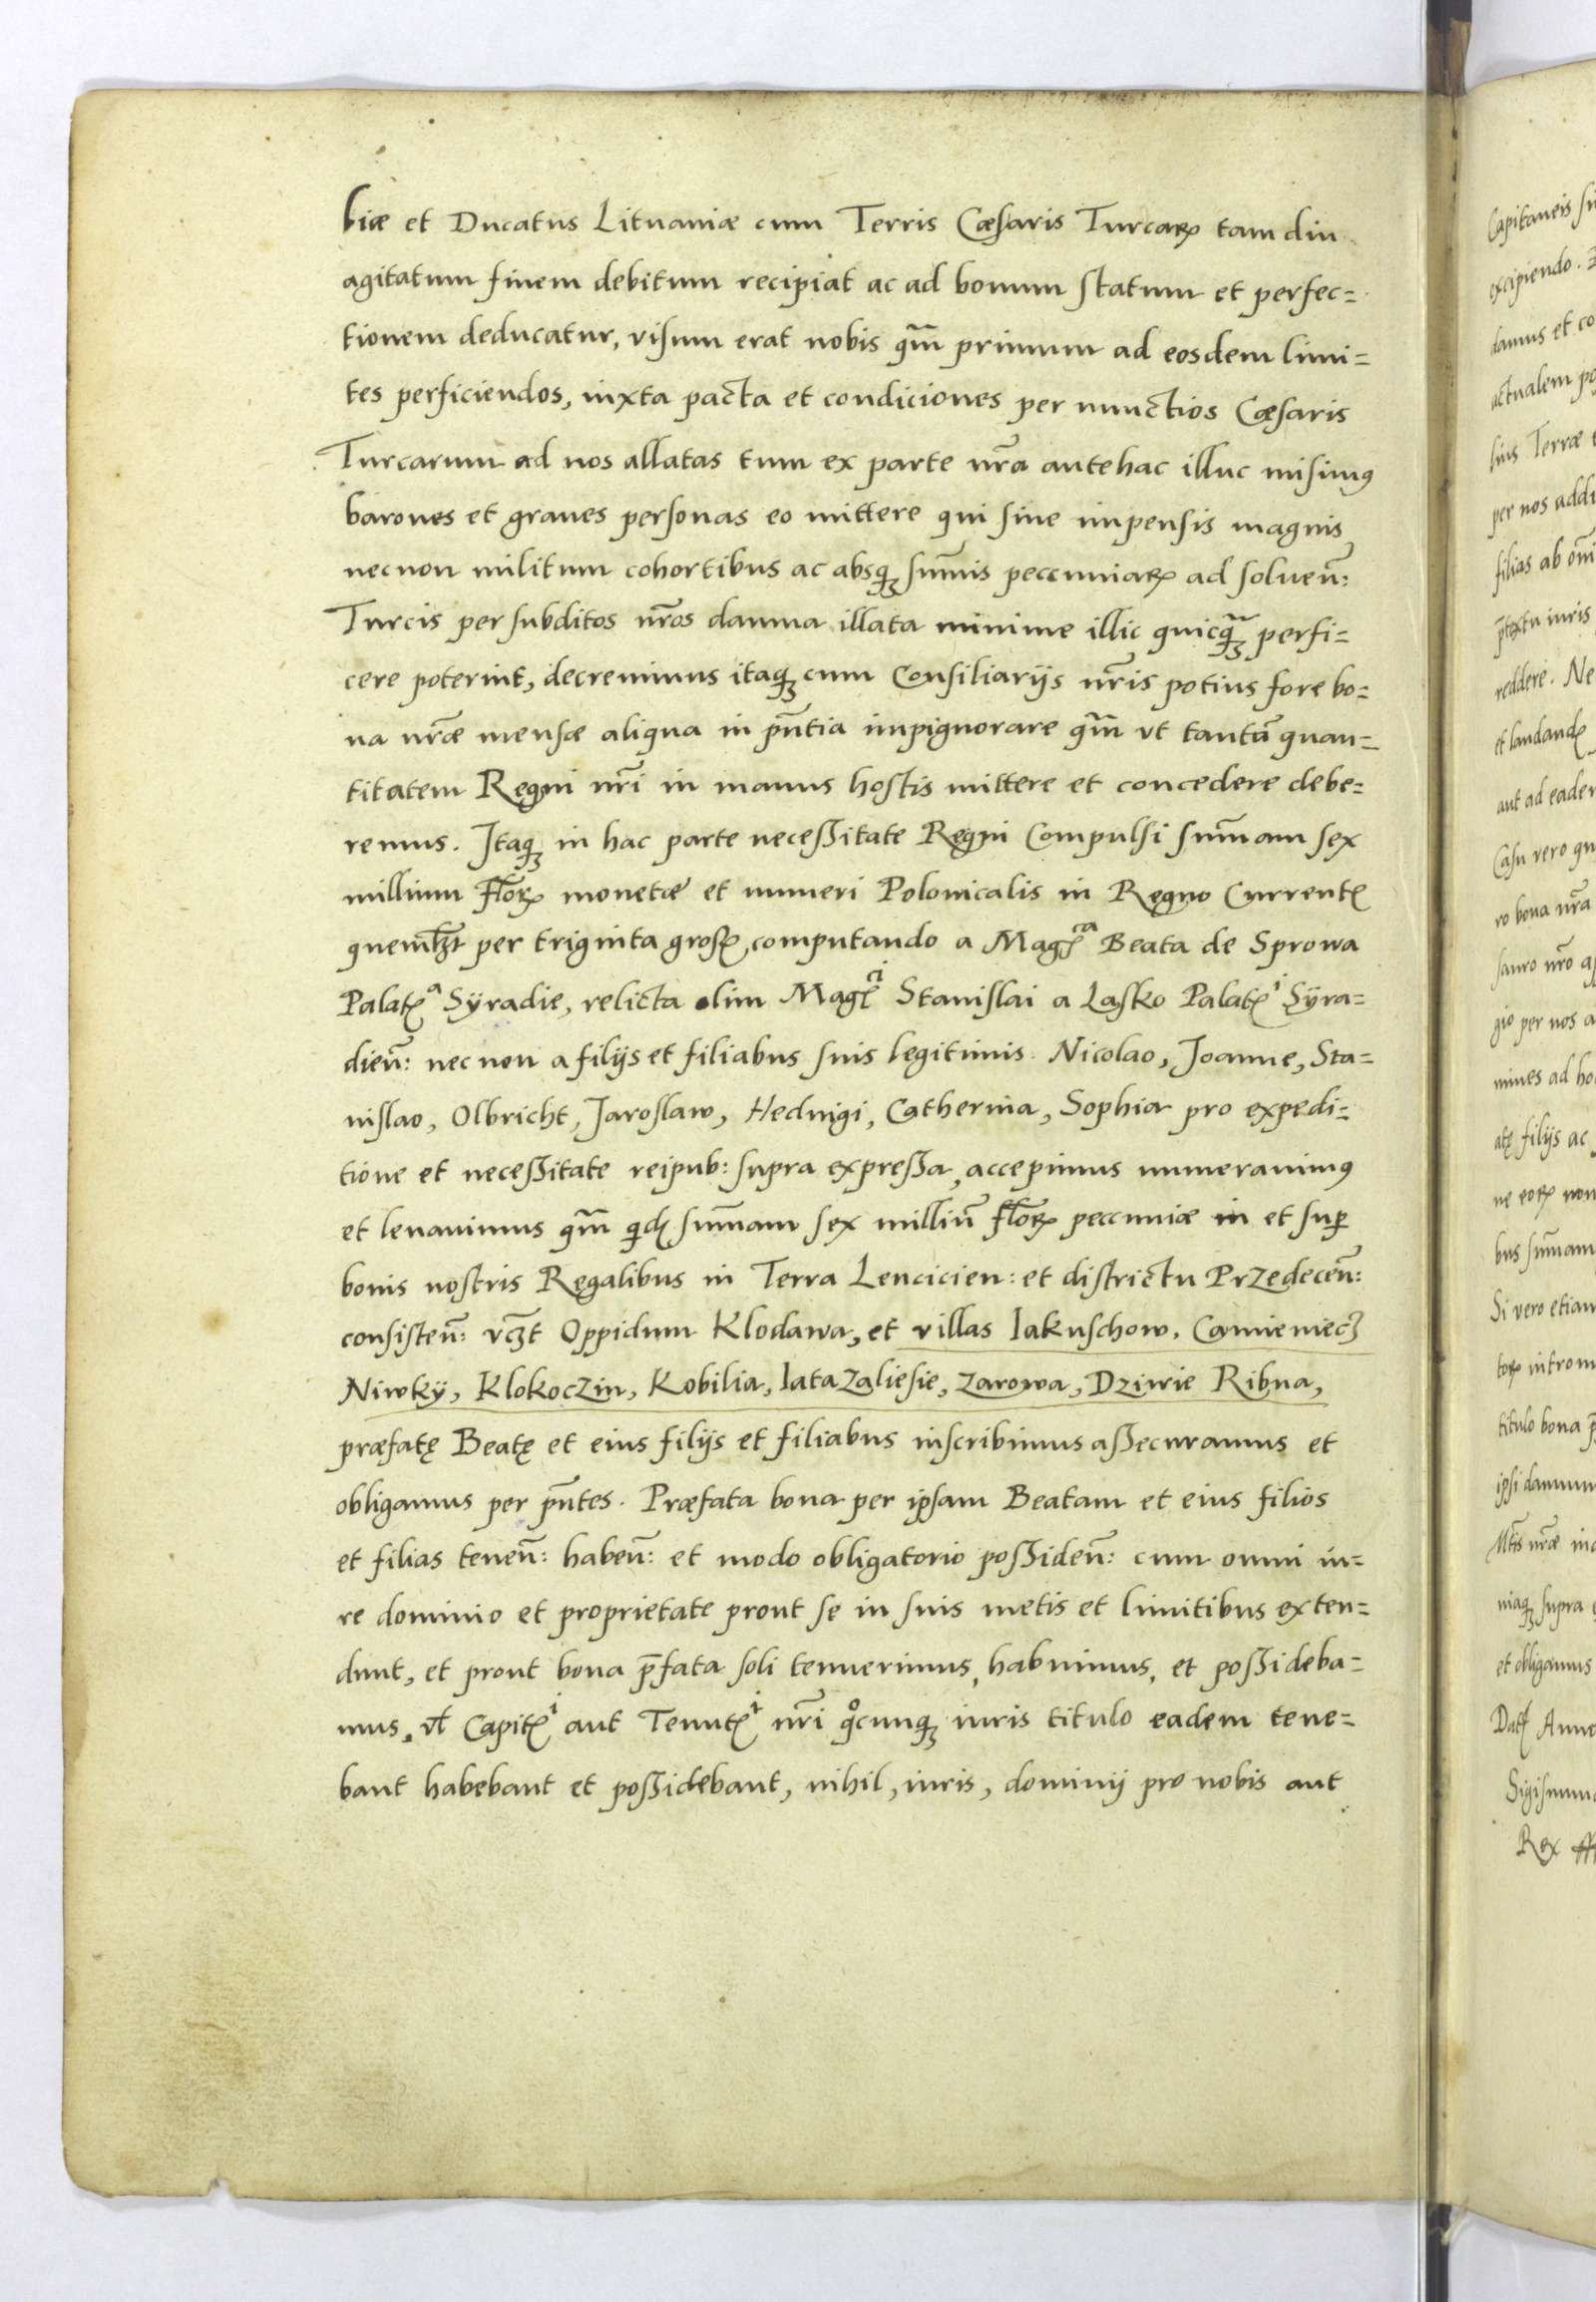 biæ et Ducatus Lituaniæ cum Terris Cæsaris Turcaꝝ tam diu
agitatum finem debitum recipiat ac ad bonum statum et perfec=
tionem deducatur, visum erat nobis qm̃ primum ad eosdem limi=
tes perficiendos, iuxta pacta et condiciones per nunctios Cæsaris
Turcarum ad nos allatas tum ex parte nr̃a antehac illuc misimꝰ
barones et graues personas eo mittere qui sine impensis magnis
necnon militum cohortibus ac absqꝫ sum̃is peccuniaꝝ ad soluen̄:
Turcis per subditos nr̃os damna illata minime illic quicqꝫ̃ perfi=
cere poterint, decreuimus itaqꝫ cum Consiliarijs nr̃is potius fore bo=
na nr̃æ mensæ aliqua in pn̄tia impignorare qm̃ vt tantā quan=
titatem Regni nr̃i in manus hostis mittere et concedere debe=
remus. Itaqꝫ in hac parte neceßitate Regni Compulsi sum̃am sex
millium flor̃ꝝ monetæ et numeri Polonicalis in Regno Currentꝭ
quemlꝫt per triginta grosꝭ, computando a Magꝭᶜᵃ Beata de Sprowa
Palatꝭᵃ Sÿradie, relicta olim Magꝭᶜⁱ Stanislai a Lasko Palatꝭⁱ Sÿra=
dien̄: nec non a filijs et filiabus suis legitimis Nicolao, Joanne, Sta=
nislao, Olbricht, Jaroslaw, Heduigi, Catherina, Sophia pro expedi=
tione et neceßitate reipub: supra expreßa, accepimus numerauimꝰ
et leuauimus qm̃ qidꝭ sum̃am sex milliū flor̃ꝝ peccuniæ in et suꝑ
bonis nostris Regalibus in Terra Lencicien: et districtu Przedecen̄:
consisten̄: vcꝫt Oppidum Klodawa, et villas Iakuschow, Camieniecꝫ
Niwkÿ, Klokoczin, Kobilia, Iata Zaliesie, Zarowa, Dziwie Ribna,
præfatę Beatę et eius filijs et filiabus inscribimus aßecuramus et
obligamus per pn̄tes. Præfata bona per ipsam Beatam et eius filios
et filias tenen̄: haben̄: et modo obligatorio poßiden̄: cum omni iu=
re dominio et proprietate prout se in suis metis et limitibus exten=
dunt, et prout bona p̄fata soli tenuerimus, habuimus, et poßideba=
mus, vl̃ Capitꝭⁱ aut Tenutꝭⁱ nr̃i qͦcunqꝫ iuris titulo eadem tene=
bant habebant et poßidebant, nihil, iuris, dominij pro nobis aut
Capitaneis
excipiendo.
damus et co
actualem po
suis Terræ
per nos addi
filias ab
p̄textu iuris
reddere. Ne
et laudandꝭ
aut ad eadem
Casu vero
ro bona nr̃a
sauro nr̃o
gio per nos a
mines ad
atę filijs ac
ne eoꝝ non
bus sum̃am
Si vero etiam
toꝝ introm
titulo bona
ipsi damnum
Mt̃is nr̃æ
niaqꝫ supra
et obligamus
Datꝭ Anno
Sigismund
Rex